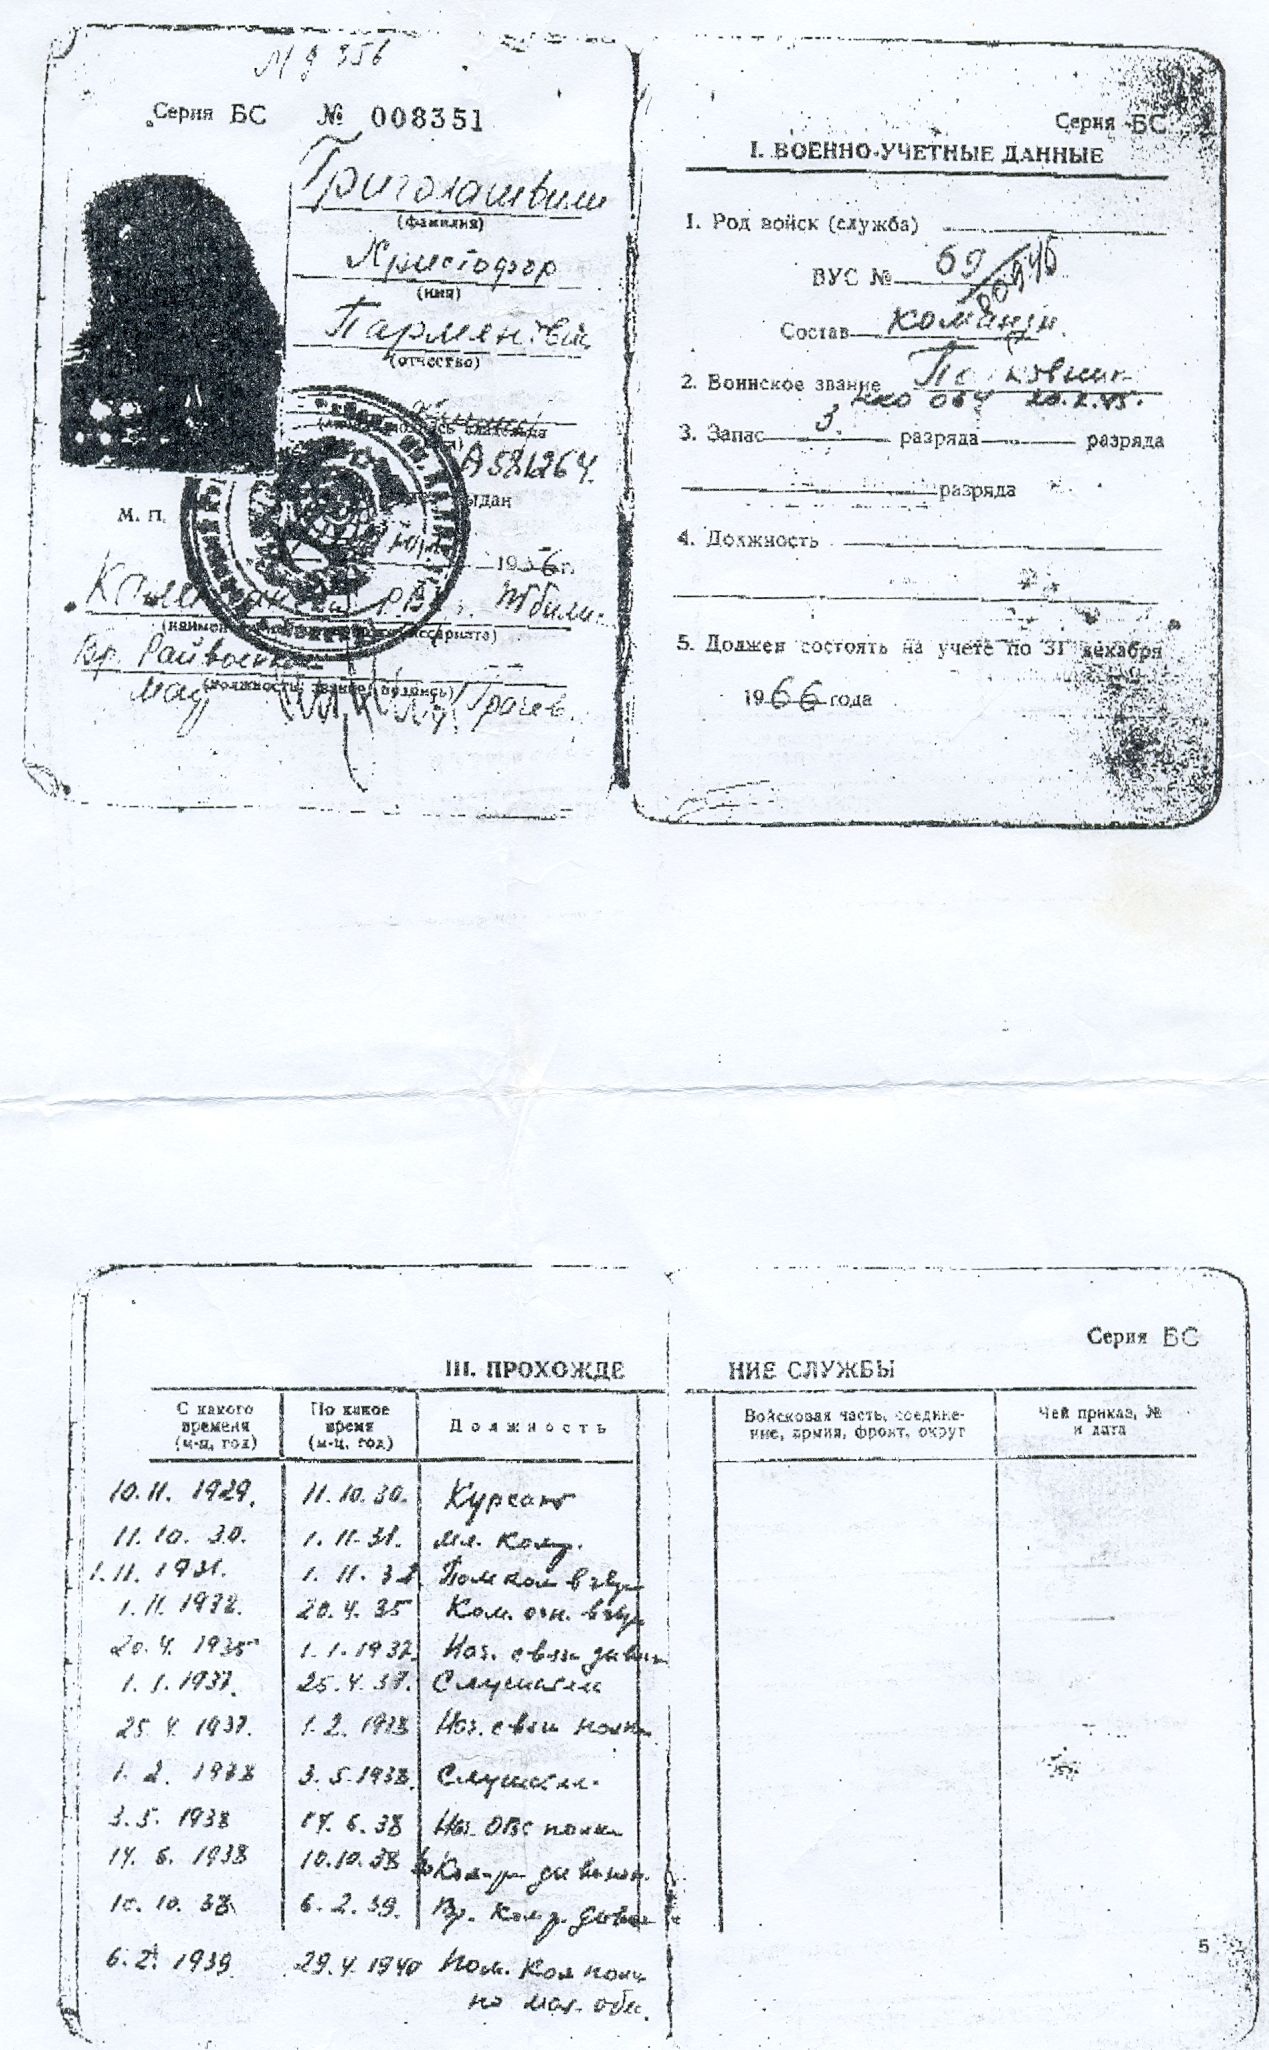 Серия БС № 008351
Григолашвили
(фамилия)
Христофор
(имя)
(отчество)
А581264.
М. П.
1956 г.
Вр. Райвоенком
(должность, звание, подпись) Грачев.
Серия БС
I. ВОЕННО-УЧЕТНЫЕ ДАННЫЕ
1. Род войск (служба)
ВУС №
Состав
2. Воинское звание Полковник
НКО 084 20.2.45.
3. Запас 3. разряда разряда
разряда
4. Должность
5. Должен состоять на учете по 31 декабря
1966 года
Серия БС
III. ПРОХОЖДЕНИЕ СЛУЖБЫ
С какого времени (м-ц, год) По какое время (м-ц, год) Должность Войсковая часть, соединение, армия, фронт, округ Чей приказ, № и дата
10.11. 1929. 11.10.30. Курсант
11.10. 30. 1.11.31. Мл. Комр.
1.11. 1931. 1.11.32 Помком взвр
1.11. 1932. 20.4.35 Ком. огн. взвр
20.4. 1935 1.1.1937. Нач. связи дивиз
1.1.1937. 25.4.37. Слушатель
25.4.1937. 1.2.1938 Нач. связи полка
1.2.1938 3.5.1938. Слушатель
3.5.1938 14.6.38 Нач. ОВС полка
14.6.1938 10.10.38 Ком-р дивизион.
10.10.38. 6.2.39. Вр. Комр. дивиз
6.2.1939 29.4.1940 Пом. Ком полк
по мат. обес.
5